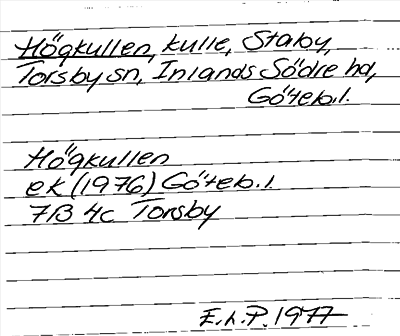 Högkullen, kulle, Staby,
Torsby sn, Inlands Södre hd,
Göteb.l.
Högkullen
ek (1976) Göteb.l.
7B 4c Torsby
E.L.P. 1977